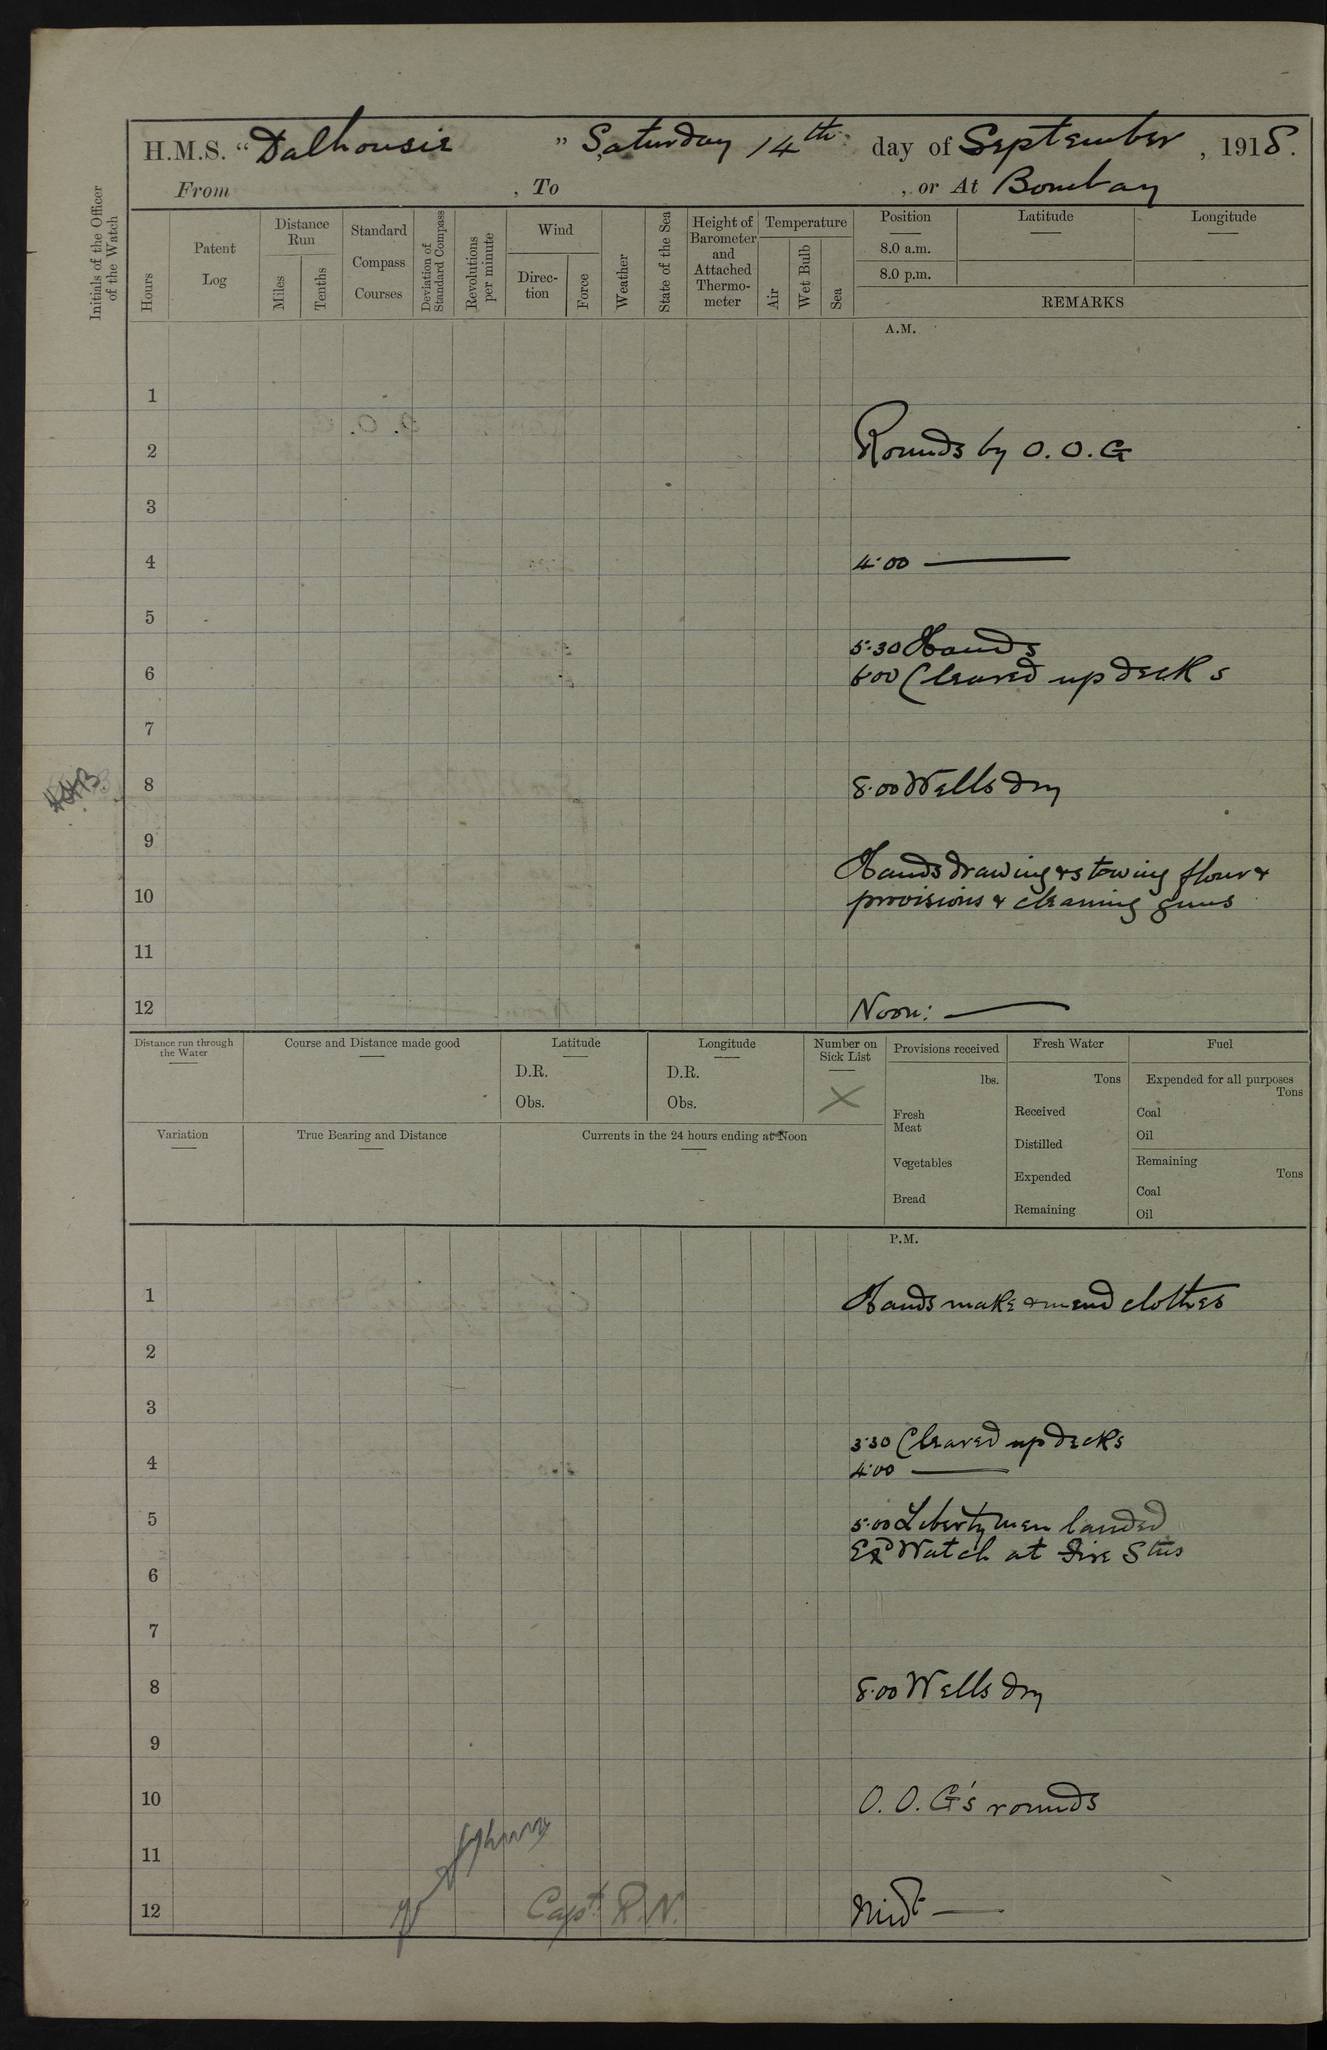 H.M.S. “Dalhousie ” Saturday 14th day of September, 1918.
From , To , or At Bombay
Initials of the Officer of the Watch
Hours
Patent Log
Distance Run
Miles
Tenths
Standard Compass Courses
Deviation of Standard Compass
Revolutions per minute
Wind
Direc-tion
Force
Weather
State of the Sea
Height of Barometer and Attached Thermo-meter
Temperature
Air
Wet Bulb
Sea
Position
Latitude
Longitude
8.0 a.m.
8.0 p.m.
REMARKS
A.M.
1
2 Rounds by O.O.G
3
4 4.00 ———
5
5.30 Hands
6 6.00 Cleared up decks
7
8 8.00 Wells dry
9
Hands drawing & stowing flour &
10 provisions & cleaning guns
11
12 Noon: ———
Distance run through the Water
Course and Distance made good
Latitude
D.R.
Obs.
Longitude
D.R.
Obs.
Number on Sick List
X
Provisions received
lbs.
Fresh Meat
Vegetables
Bread
Fresh Water
Tons
Received
Distilled
Expended
Remaining
Fuel
Expended for all purposes
Tons
Coal
Oil
Remaining
Tons
Coal
Oil
Variation
True Bearing and Distance
Currents in the 24 hours ending at Noon
P.M.
1 Hands make & mend clothes
2
3
3.30 Cleared up decks
4 4.00 ———
5 5.00 Liberty men landed
Exd Watch at Fire Stns
6
7
8 8.00 Wells dry
9
10 O.O.G's rounds
11
12 Capt. R.N. Midt ———